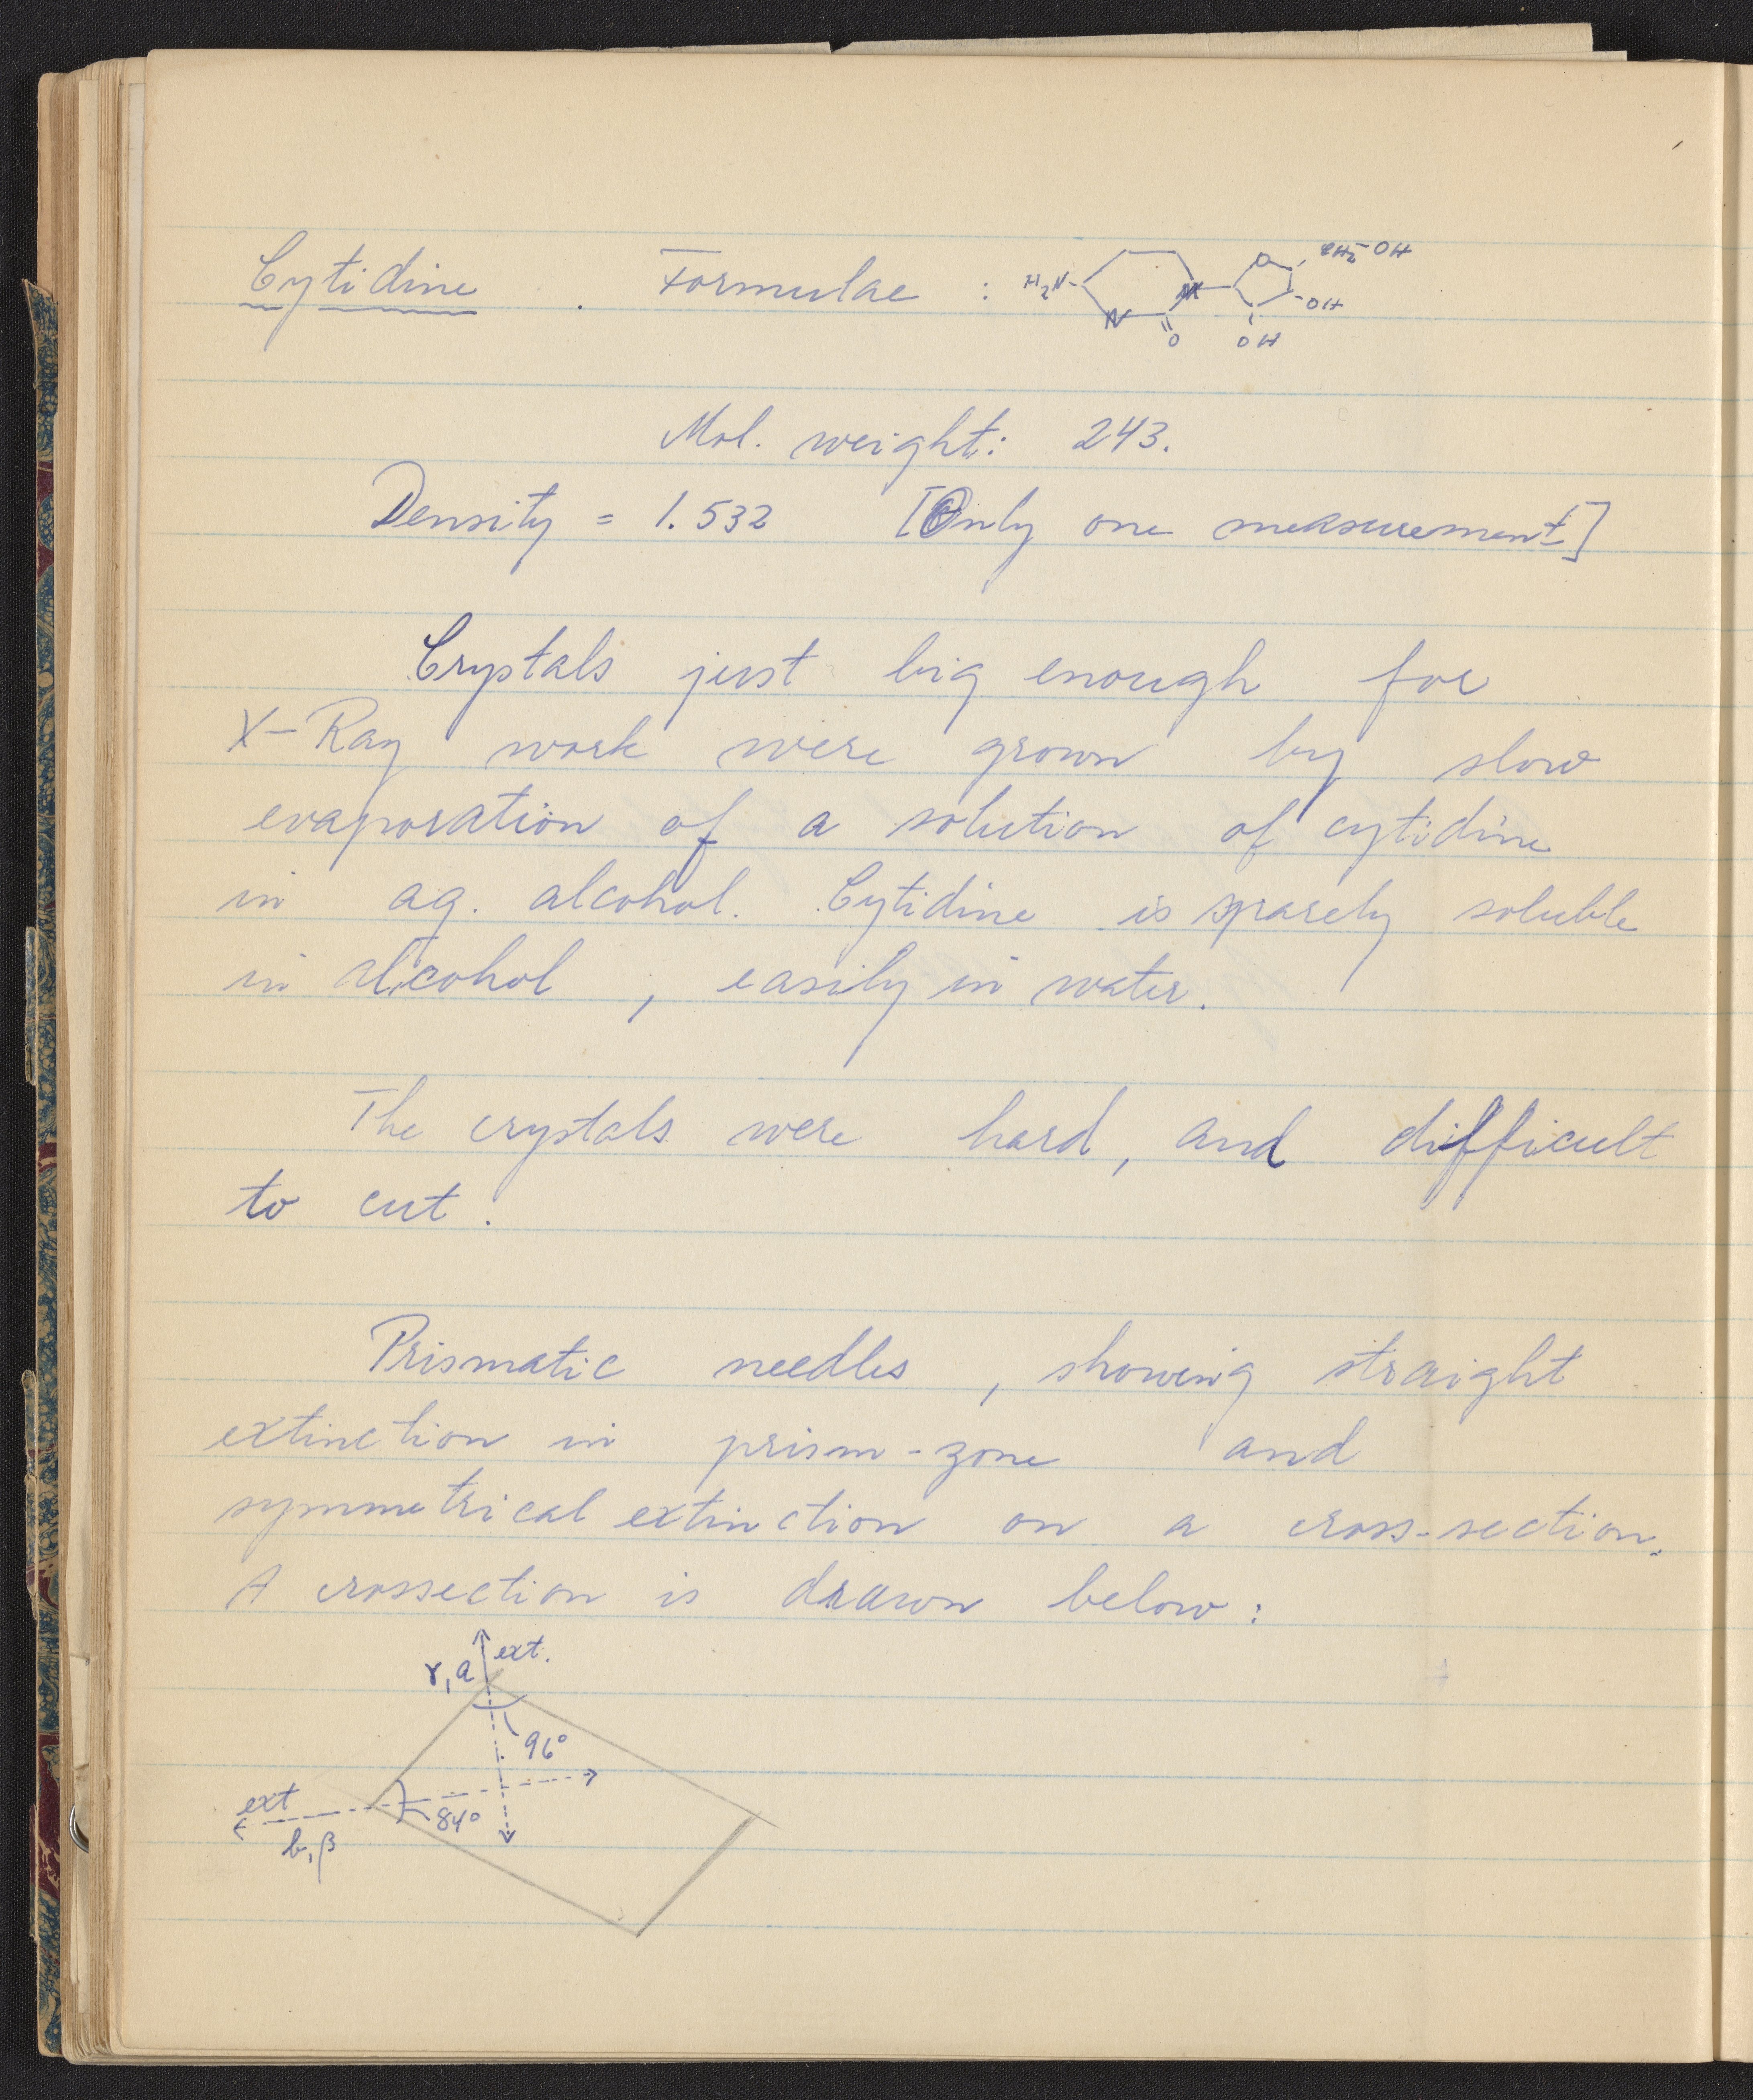 Cytidine . Formulae : H₂N- N N O O CH₂-OH -OH OH
Mol. weight: 243.
Density = 1.532 [Only one measurement]
Crystals just big enough for
X-Ray work were grown by slow
evaporation of a solution of cytidine
in aq. alcohol. Cytidine is sparely soluble
in alcohol , easily in water.
The crystals were hard, and difficult
to cut.
Prismatic needles , showing straight
extinction in prism-zone and
symmetrical extinction on a cross-section.
A crossection is drawn below:
ext.
γ, a
96°
ext
84°
b, β